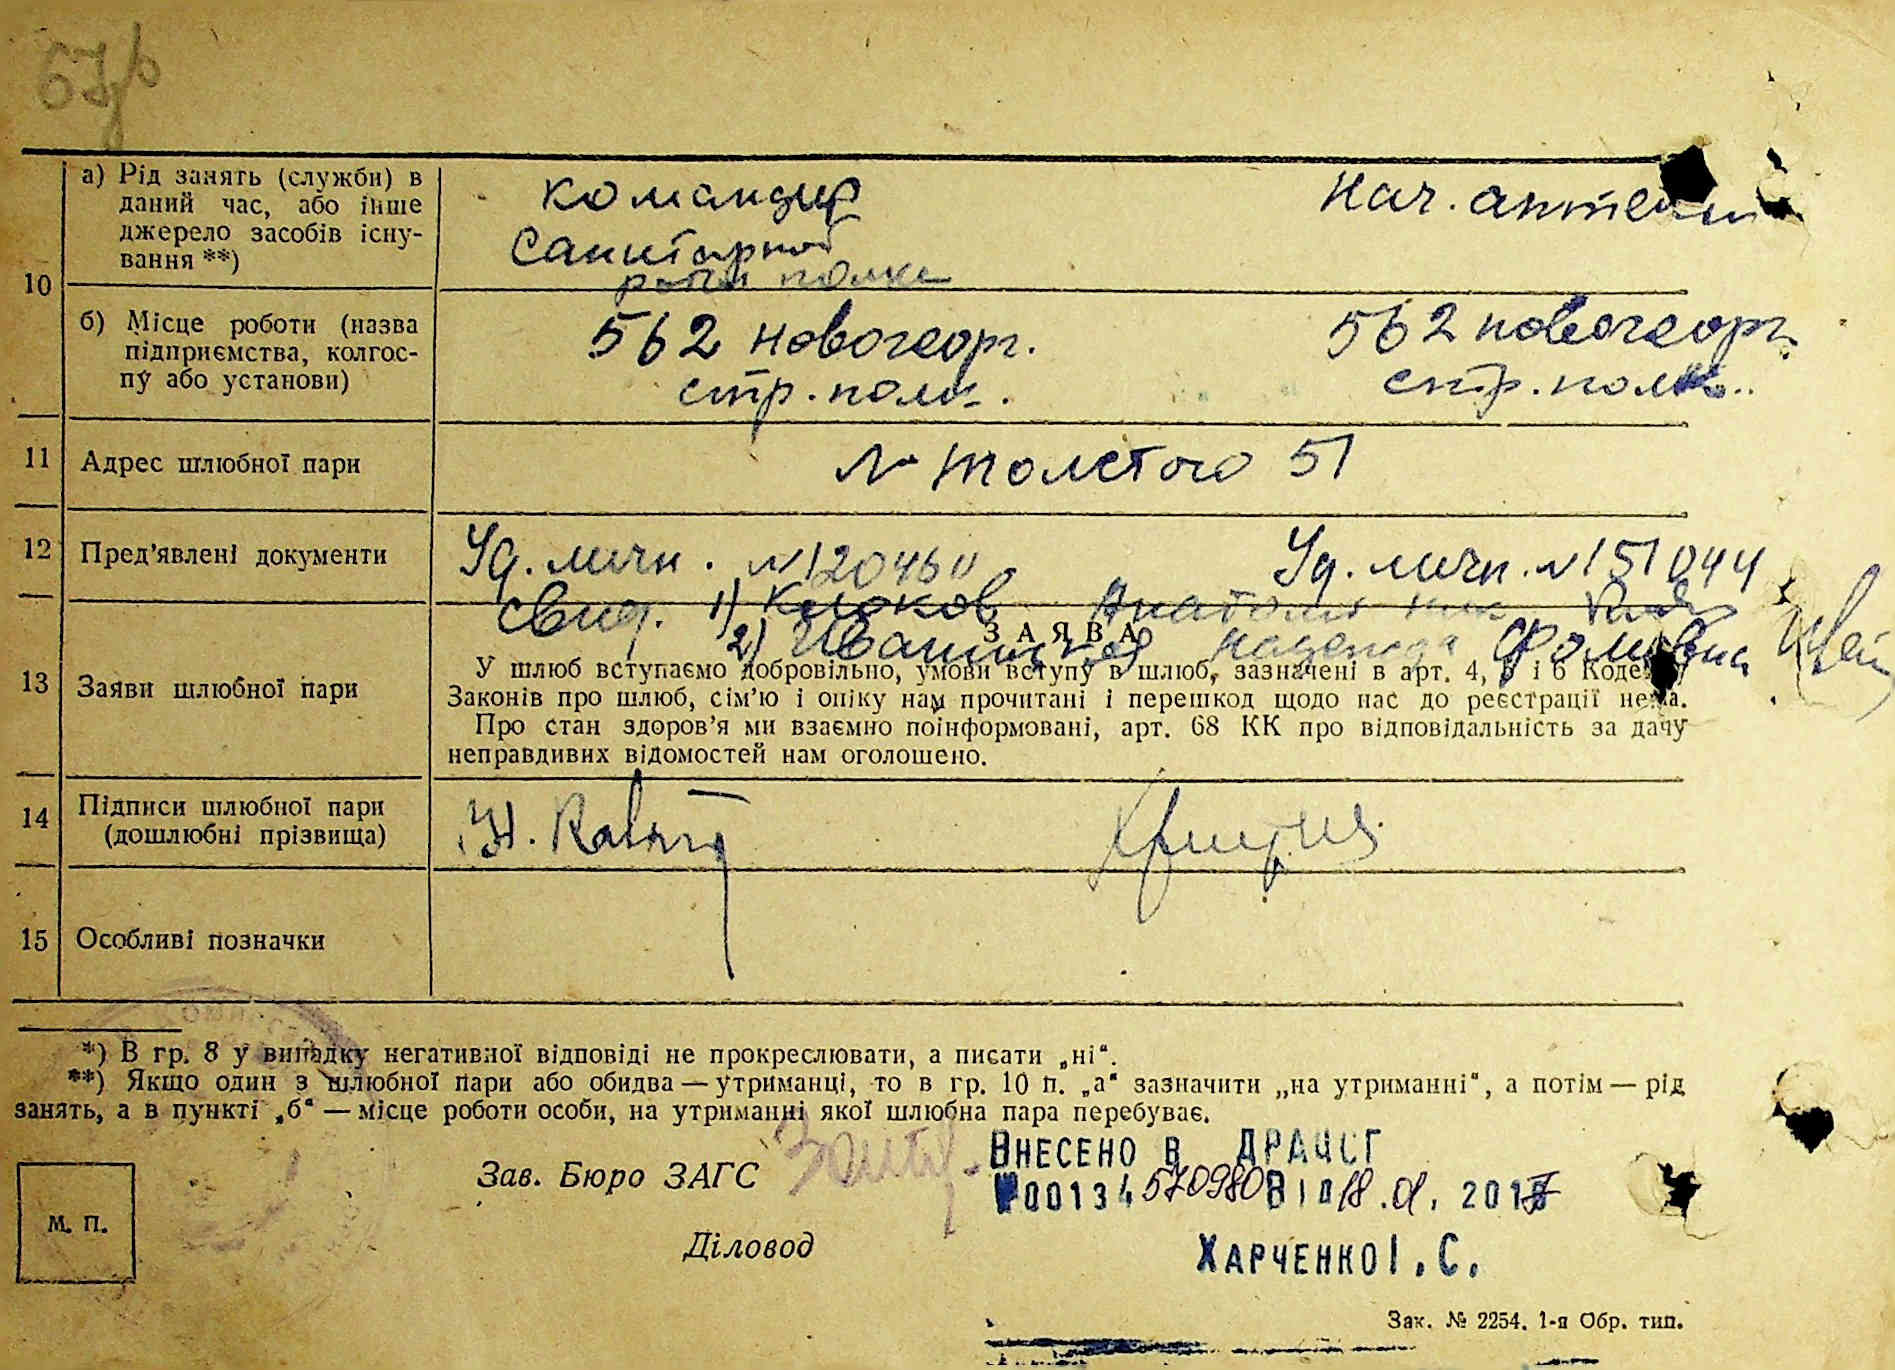 а) Рід занять (служби) в
даний час, або інше
джерело засобів існу-
вання **)
командир
Санитарной
роти полка
Нач. аптеки
10
б) Місце роботи (назва
підприємства, колгос-
пу або установи)
562 новогеорг.
стр. полк.
562 новогеорг.
стр. полк..
11 Адрес шлюбної пари
Толстого 51
12 Пред'явлені документи
Уд. личн. №120460
Уд. личн. №151044
свид. 1) Клюков Анатолий
2) Надежда
13 Заяви шлюбної пари
ЗАЯВА
У шлюб вступаємо добровільно, умови вступу в шлюб, зазначені в арт. 4, 5 і 6 Кодексу
Законів про шлюб, сім'ю і опіку нам прочитані і перешкод щодо нас до реєстрації нема.
Про стан здоров'я ми взаємно поінформовані, арт. 68 КК про відповідальність за дачу
неправдивих відомостей нам оголошено.
14 Підписи шлюбної пари
(дошлюбні прізвища)
15 Особливі позначки
*) В гр. 8 у випадку негативної відповіді не прокреслювати, а писати „ні“.
**) Якщо один з шлюбної пари або обидва — утриманці, то в гр. 10 п. „а“ зазначити „на утриманні“, а потім — рід
занять, а в пункті „б“ — місце роботи особи, на утриманні якої шлюбна пара перебуває.
М. П.
Зав. Бюро ЗАГС
Діловод
ВНЕСЕНО В ДРАЦСГ
№00134570980 Від 18.01.2017
ХАРЧЕНКО І. С.
Зак. № 2254. 1-я Обр. тип.